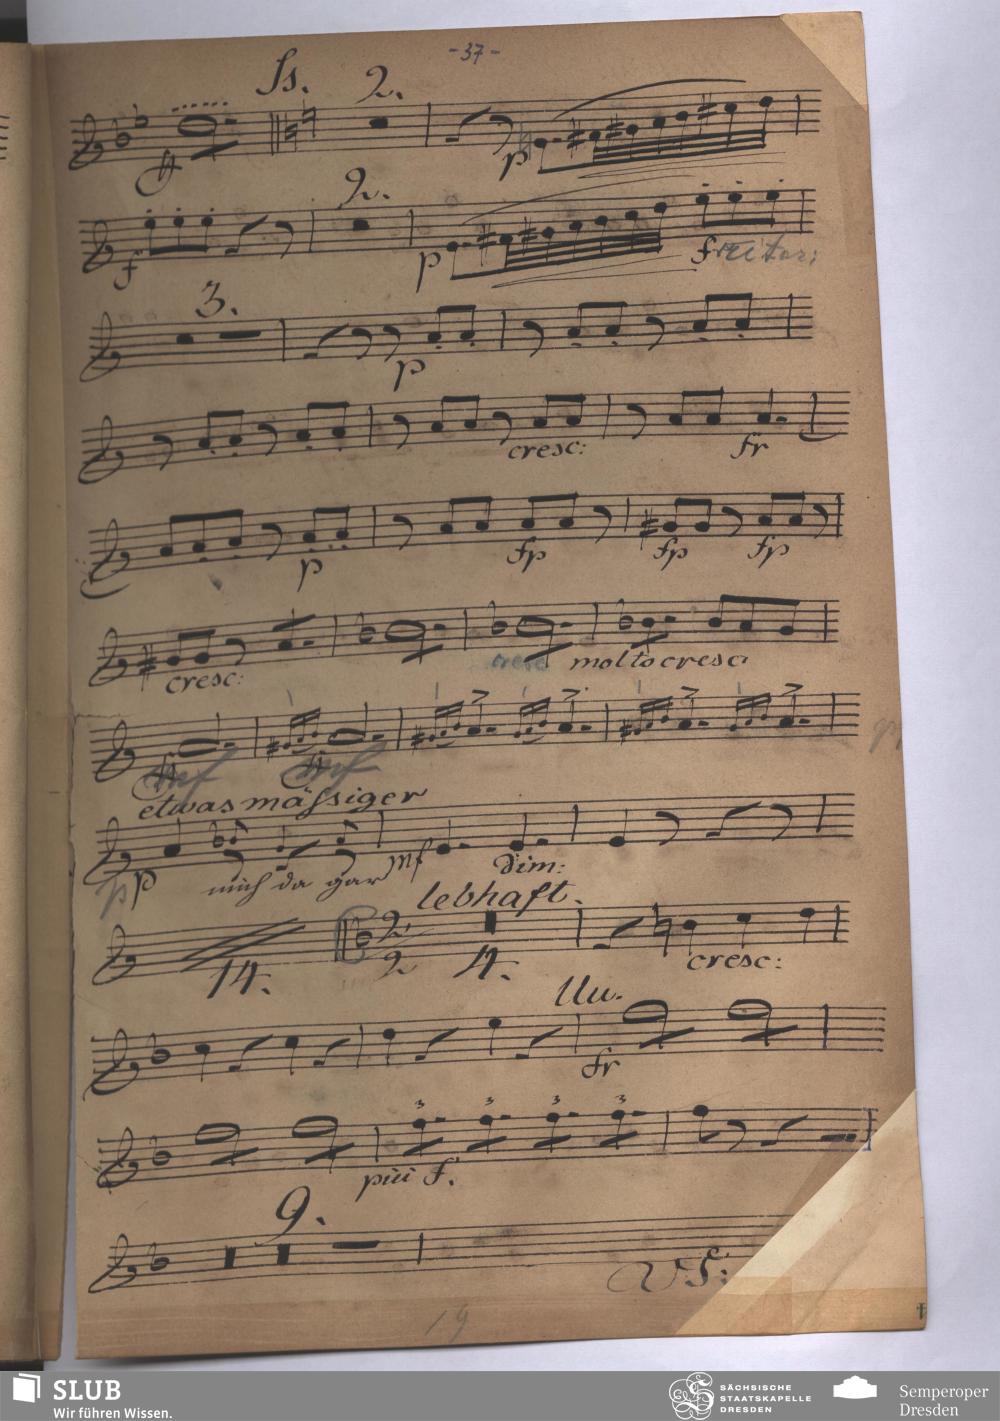 -37-
Ss. 2.
ff p
2.
f p f ritar:
3.
p
cresc: fr
p fp fp fp
cresc: cresc molto cresc:
ff mf ff mf
etwas mässiger
pp mich da gar mf dim:
lebhaft.
14. 2/2 4. cresc:
Uu.
fr
3 3 3 3
piu f.
9.
VS:
19
SLUB
Wir führen Wissen.
SÄCHSISCHE
STAATSKAPELLE
DRESDEN
Semperoper
Dresden